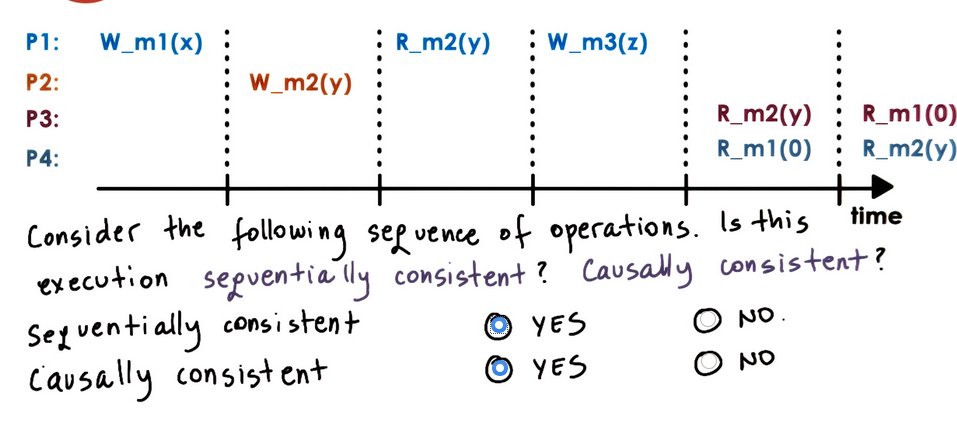 P1: W_m1(x) R_m2(y) W_m3(z)
P2: W_m2(y)
P3: R_m2(y) R_m1(0)
P4: R_m1(0) R_m2(y)
time
Consider the following sequence of operations. Is this
execution sequentially consistent? Causally consistent?
Sequentially consistent YES NO.
Causally consistent YES NO